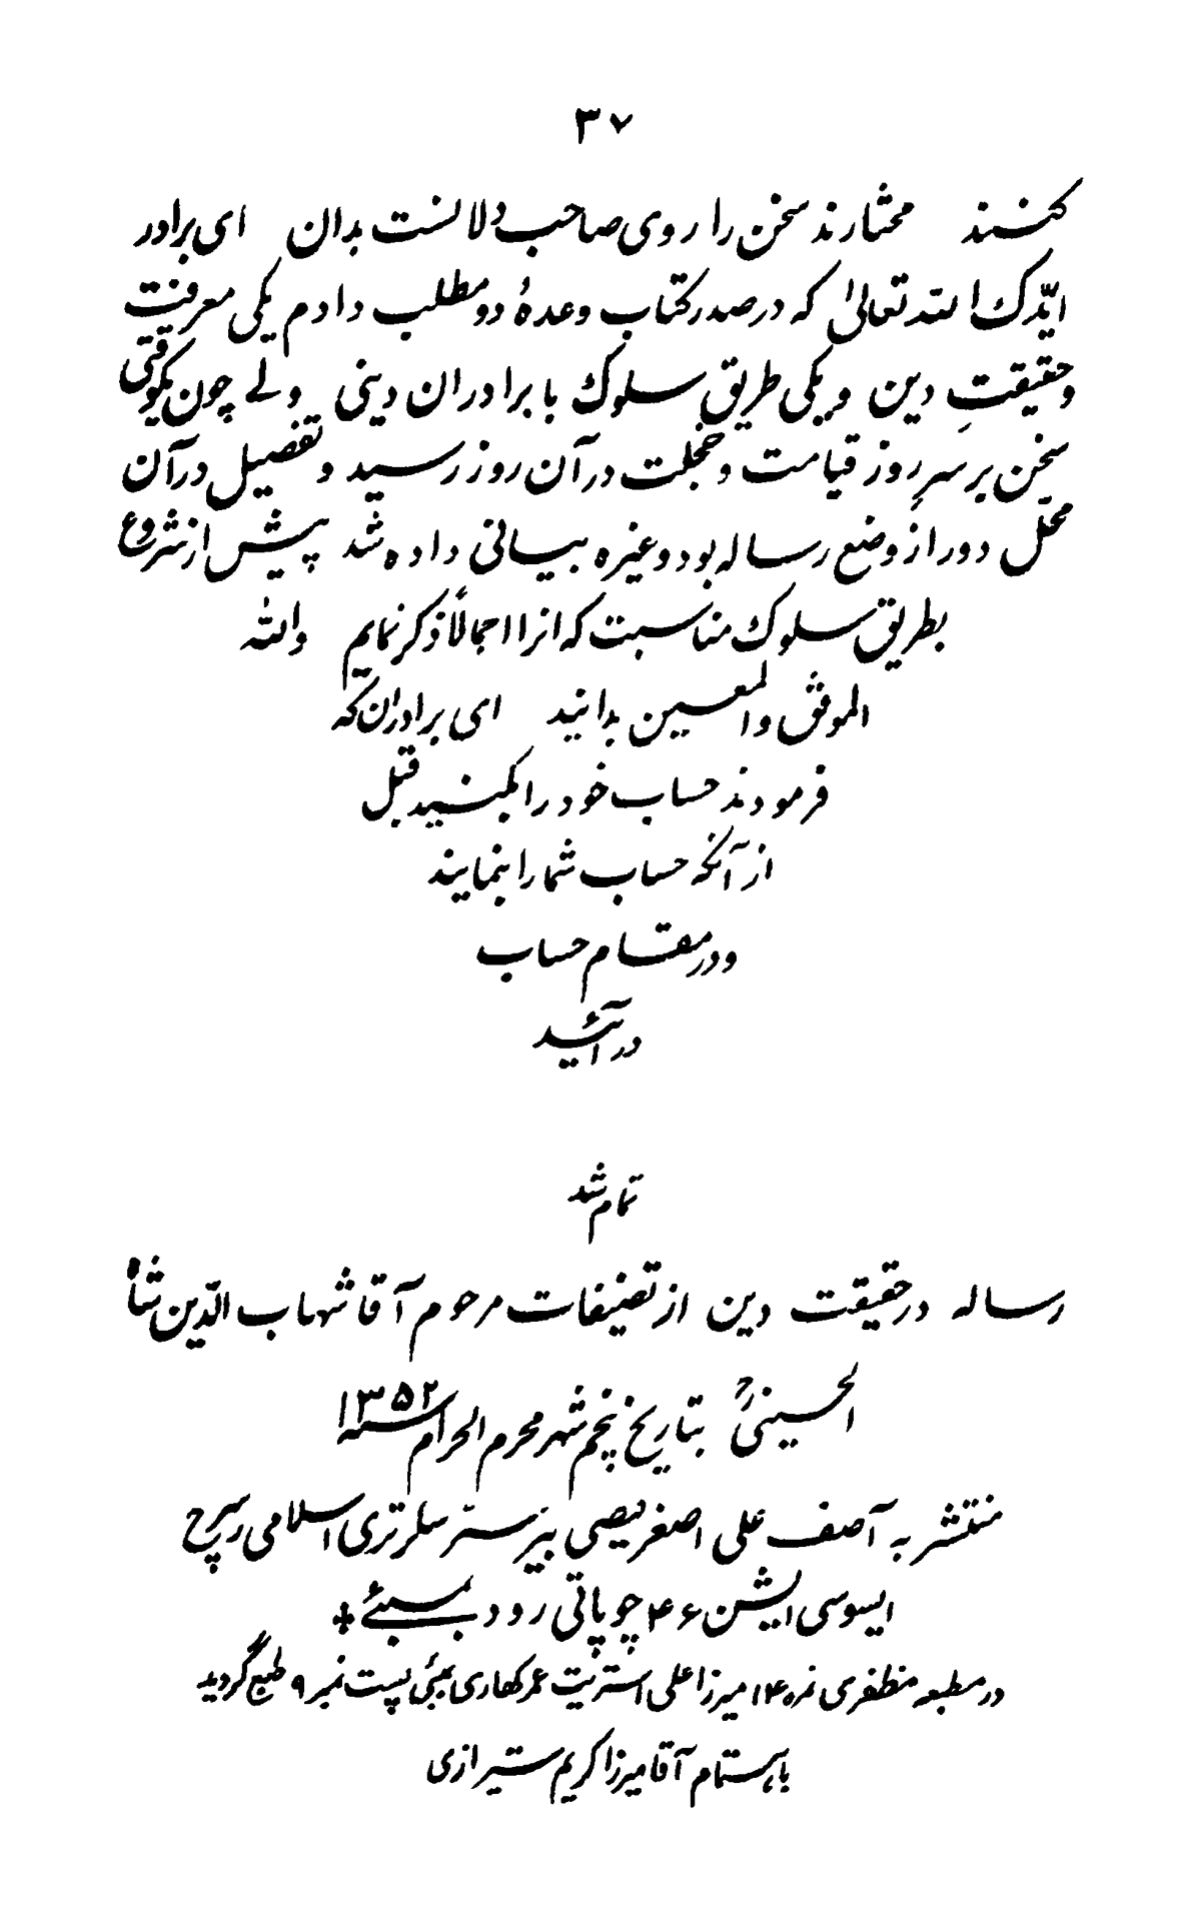 ۳۷
کنند مختارند سخن را روی صاحب دلالنست بدان ای برادر
ایّدک الله تعالیٰ که در صدر کتاب وعدهٔ دو مطلب دادم یکی معرفت
و حقیقتِ دین و یکی طریق سلوک با برادران دینی ولے چون یکوقتی
سخن بر سرِ روز قیامت و خجلت در آن روز رسید و تفصیل در آن
محّل دور از وضع رساله بود و غیره بیانی داده شد پیش از شروع
بطریق سلوک مناسبت که انرا اجمالاً ذکر نمایم والله
الموفق والمعین بدانید ای برادران که
فرمودند حساب خود را بکنید قبل
از آنکه حساب شما را بنمایند
و در مقام حساب
در آئید
تمام شد
رساله در حقیقت دین از تصنیفات مرحوم آقا شهاب الدّین شاه
الحسینیؒ بتاریخ پنجم شهر محرم الحرام سنه ۱۳۵۲
منتشر به آصف علی اصغر فیضی بیرستر سکرتری اسلامی ریسرچ
ایسوسی ایشن ۴۶ چوپاتی رود بمبئے
در مطبعه مظفری نمره ۱۴ میرزا علی استریت عمرکهاری بمبئی پست نمبر ۹ طبع گردید
باهتمام آقا میرزا کریم شیرازی